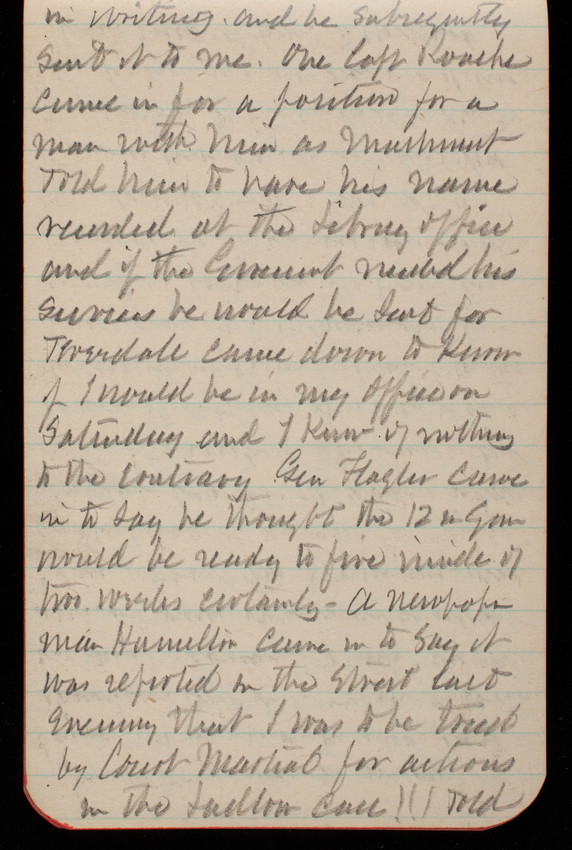 in writing. and he subsequently
sent it to me. One Capt Roache
came in for a position for a
man with him as
Told him to have his name
recorded at the Library office
and if the Government needed his
services he would be sent for
came down to know
if I would be in my office on
Saturday and I know of nothing
to the contrary Gen Flagler came
in to say he thought the 12 in Gun
would be ready to fire inside of
two weeks certainly - A newspaper
man Hamilton came in to say it
was reported on the Street last
Evening that I was to be tried
by Court Martial for actions
in the Ludlow case!!! Told